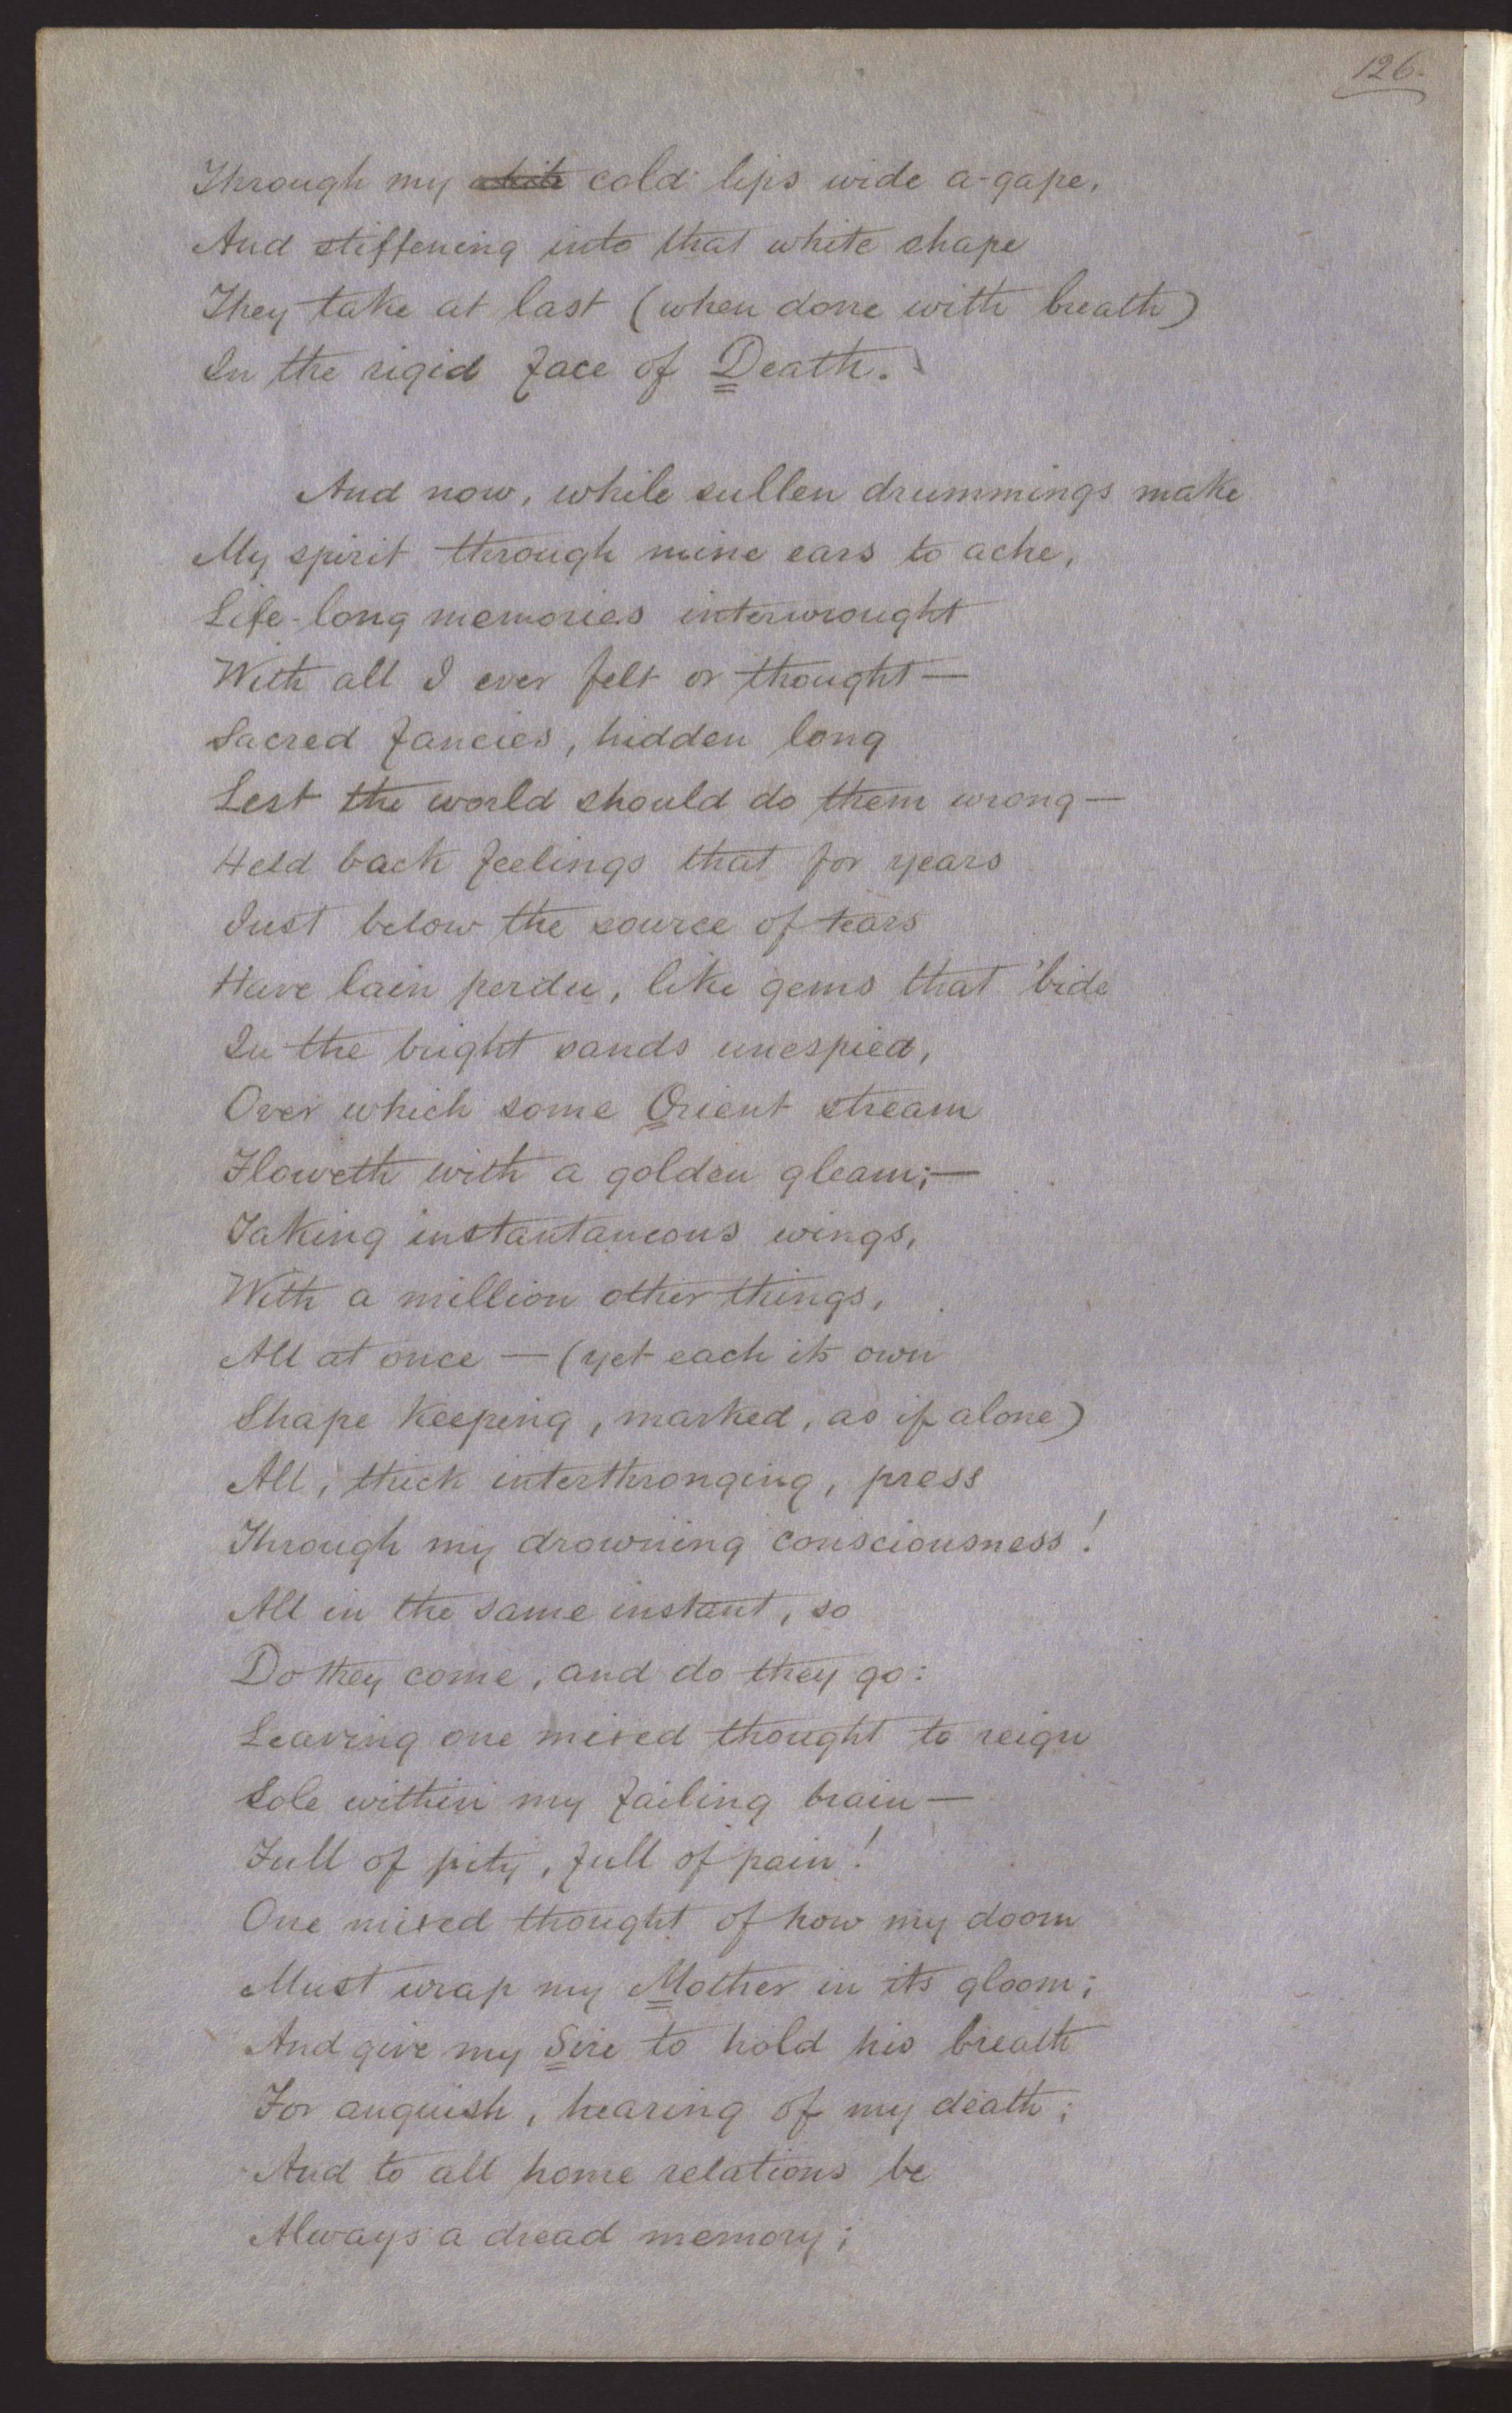 126.
Through my white cold lips wide a-gape,
And stiffening into that white shape
They take at last (when done with breath)
In the rigid face of Death.
And now, while sullen drummings make
My spirit through mine ears to ache,
Life-long memories interwrought
With all I ever felt or thought—
Sacred fancies, hidden long
Lest the world should do them wrong—
Held back feelings that for years
Just below the source of tears
Have lain perdu, like gems that 'bide
In the bright sands unespied,
Over which some Orient stream
Floweth with a golden gleam;—
Taking instantaneous wings,
With a million other things,
All at once — (yet each its own
Shape keeping, marked, as if alone)
All, thick interthronging, press
Through my drowning consciousness!
All in the same instant, so
Do they come, and do they go:
Leaving one mixed thought to reign
Sole within my failing brain—
Full of pity, full of pain!
One mixed thought of how my doom
Must wrap my Mother in its gloom;
And give my Sire to hold his breath
For anguish, hearing of my death;
And to all home relations be
Always a dread memory;